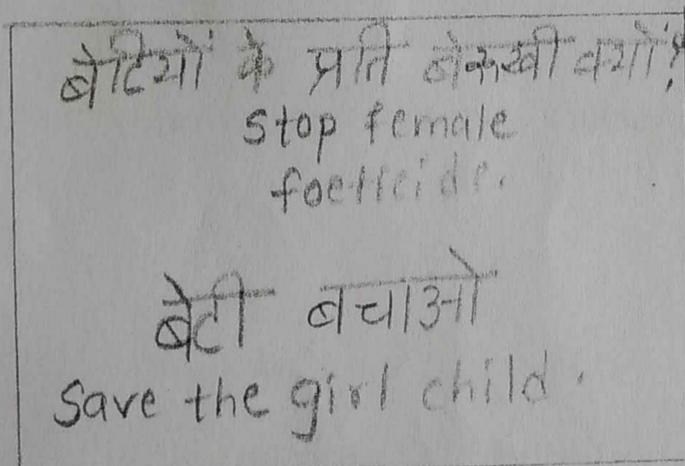 बेटियों के प्रति बेरूखी क्यों?
stop female
foeticide.
बेटी बचाओ
Save the girl child.